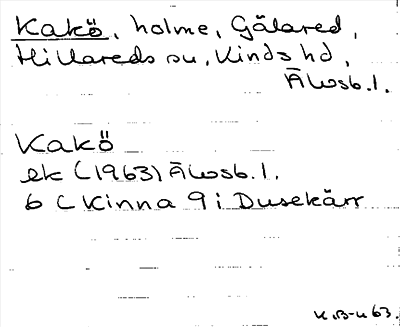 Kakö, holme, Gålared,
Hillareds sn, Kinds hd,
Älvsb. l.
Kakö
ek (1963) Älvsb. l.
6 C Kinna 9 i Dusekärr
K.B-n 63.